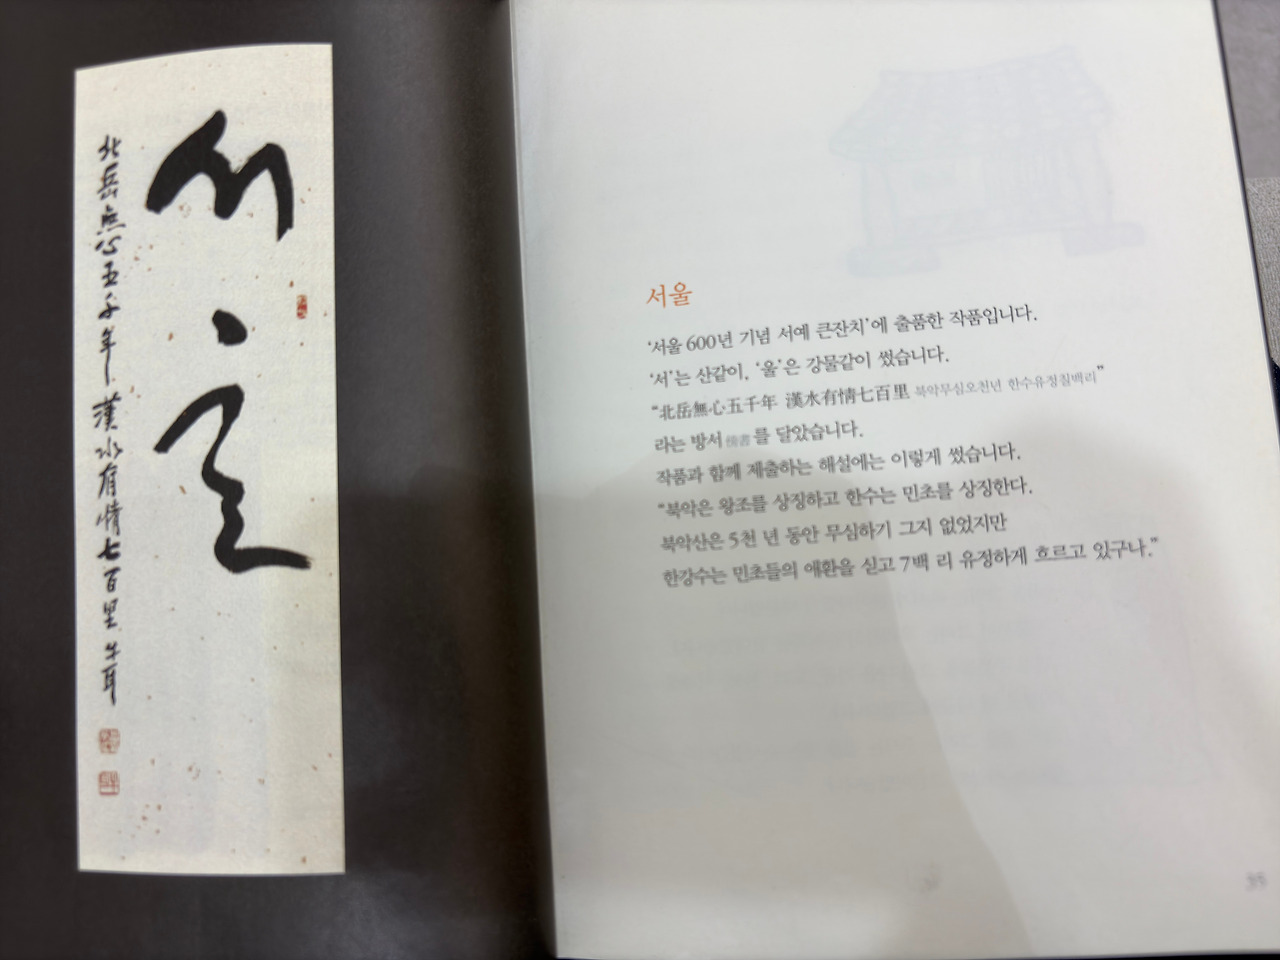 서울
北岳無心五千年 漢水有情七百里 牛耳
서울
‘서울 600년 기념 서예 큰잔치’에 출품한 작품입니다.
‘서’는 산같이, ‘울’은 강물같이 썼습니다.
“北岳無心五千年 漢水有情七百里 북악무심오천년 한수유정칠백리”
라는 방서 傍書를 달았습니다.
작품과 함께 제출하는 해설에는 이렇게 썼습니다.
“북악은 왕조를 상징하고 한수는 민초를 상징한다.
북악산은 5천 년 동안 무심하기 그지 없었지만
한강수는 민초들의 애환을 싣고 7백 리 유정하게 흐르고 있구나.”